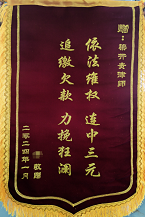 赠：蔡开贵律师
依法维权 连中三元
追缴欠款 力挽狂澜
敬赠
二零二四年一月